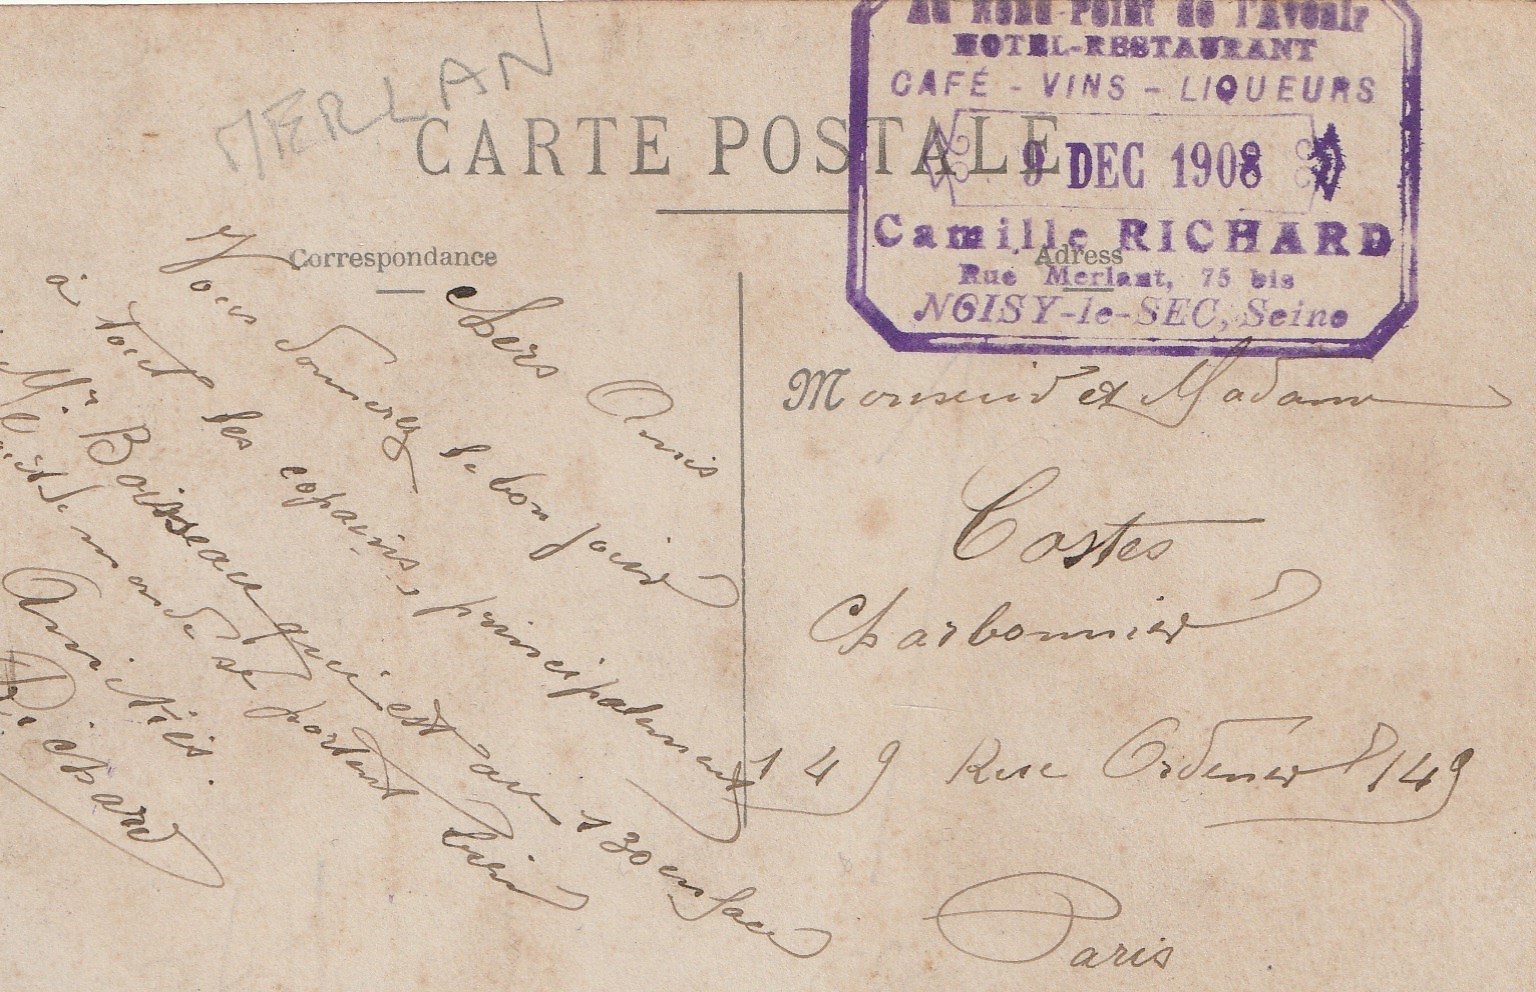 MERLAN
CARTE POSTALE
Au Rond-Point de l'Avenir
HOTEL-RESTAURANT
CAFÉ - VINS - LIQUEURS
9 DEC 1908
Camille RICHARD
Rue Merlant, 75 bis
NOISY-le-SEC, Seine
Correspondance
Chers Amis
Vous donnerez le bonjour
à tout les copains, principalement
Mr Boisseau qui est au 130 en face
monde se portent bien
Amitiés.
Richard
Adress
Monsieur et Madame
Costes
Charbonnier
149 Rue Ordener 149
Paris